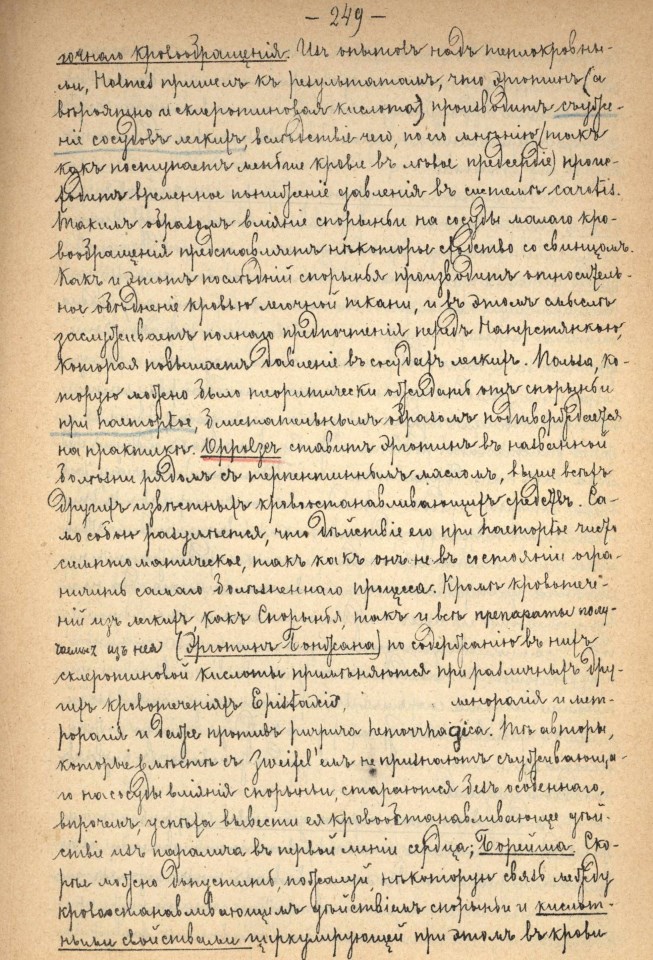 — 249 —
гочнаго кровообращенія. Изъ опытовъ надъ теплокровны-
ми, Holmes пришелъ къ результатамъ, что Эрготинъ (а
вѣроятно и склеротиновая кислота) производитъ съуже-
ніе сосудовъ легкихъ, вслѣдствіе чего, по его мнѣнію (такъ
какъ поступаетъ меньше крови въ лѣвое предсердіе) проис-
ходитъ временное пониженіе давленія въ системѣ carotis.
Такимъ образомъ вліяніе спорыньи на сосуды малаго кро-
вообращенія представляетъ нѣкоторое сходство со свинцомъ.
Какъ и этотъ послѣдній спорынья производитъ относитель-
ное обѣдненіе кровью легочной ткани, и въ этомъ смыслѣ
заслуживаетъ полнаго предпочтенія передъ Наперстянкою,
которая повышаетъ давленіе въ сосудахъ легкихъ. Польза, ко-
торую можно было теоритически ожидать отъ спорыньи
при haemoptoe, блистательнымъ образомъ подтверждается
на практикѣ. Oppolzer ставитъ Эрготинъ въ названной
болѣзни рядомъ съ терпентиннымъ масломъ, выше всѣхъ
другихъ извѣстныхъ кровоостанавливающихъ средствъ. Са-
мо собою разумѣется, что дѣйствіе его при haemoptoe чисто
симптоматическое, такъ какъ онъ не въ состояніи огра-
ничить самаго болѣзненнаго процесса. Кромѣ кровотече-
ній изъ легкихъ, какъ Спорынья, такъ и всѣ препараты полу-
чаемые изъ нея (Эрготинъ Бонжана) по содержанію въ нихъ
склеротиновой кислоты примѣняются при различныхъ дру-
гихъ кровотеченіяхъ Epistaxis, меноррагія и мет-
роррагія и даже противъ purpura hemorrhagica. Тѣ авторы,
которые вмѣстѣ съ Zweifel'емъ не признаютъ съуживающа-
го на сосуды вліянія спорыньи, стараются безъ особеннаго,
впрочемъ, успѣха вывести ея кровоостанавливающее дѣй-
ствіе изъ паралича въ первой линіи сердца; Борейша. Ско-
рѣе можно допустить, пожалуй, нѣкоторую связь между
кровоостанавливающимъ дѣйствіемъ спорыньи и кислот-
ными свойствами циркулирующей при этомъ въ крови